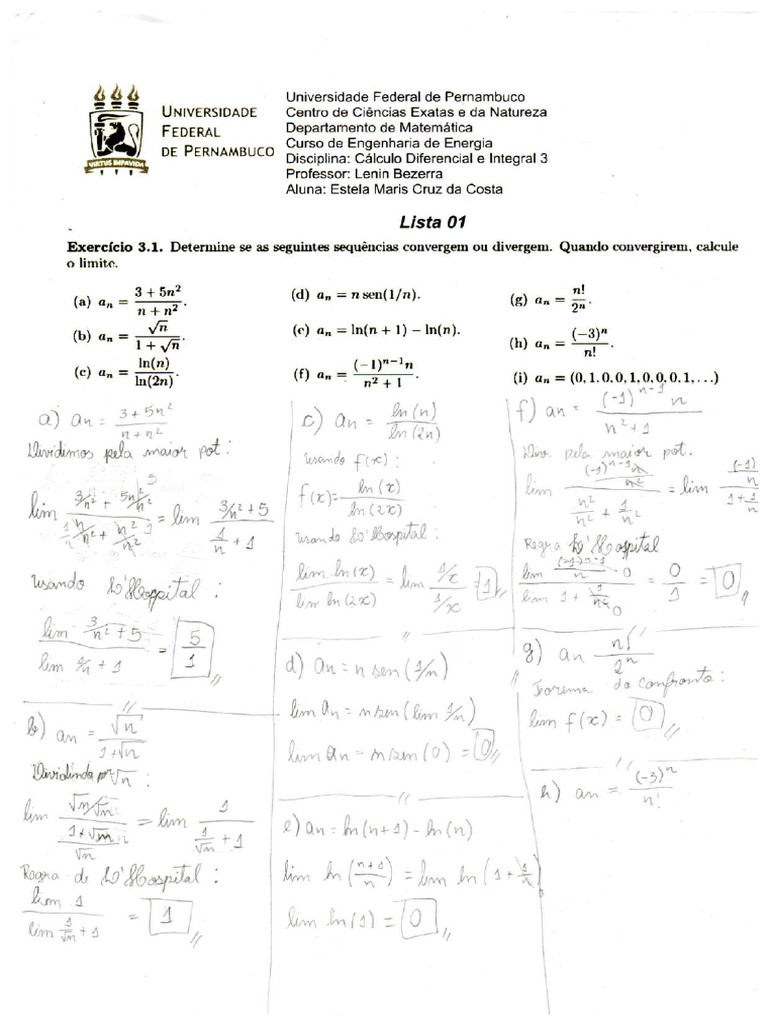 UNIVERSIDADE
FEDERAL
DE PERNAMBUCO
VIRTUS IMPAVIDA
Universidade Federal de Pernambuco
Centro de Ciências Exatas e da Natureza
Departamento de Matemática
Curso de Engenharia de Energia
Disciplina: Cálculo Diferencial e Integral 3
Professor: Lenin Bezerra
Aluna: Estela Maris Cruz da Costa
Lista 01
Exercício 3.1. Determine se as seguintes sequências convergem ou divergem. Quando convergirem, calcule
o limite.
(a) aₙ = (3 + 5n²)/(n + n²).
(b) aₙ = √n/(1 + √n).
(c) aₙ = ln(n)/ln(2n).
(d) aₙ = n sen(1/n).
(e) aₙ = ln(n + 1) − ln(n).
(f) aₙ = (−1)ⁿ⁻¹n/(n² + 1).
(g) aₙ = n!/2ⁿ.
(h) aₙ = (−3)ⁿ/n!.
(i) aₙ = (0, 1, 0, 0, 1, 0, 0, 0, 1, …)
a) an = (3 + 5n²)/(n + n²)
Dividimos pela maior pot:
lim (3/n² + 5n²/n²)/(n/n² + n²/n²) = lim (3/n² + 5)/(1/n + 1)
usando L'Hospital:
lim 3/n² + 5 / lim 1/n + 1 = 5/1
b) an = √n/(1 + √n)
Dividindo p √n:
lim (√n/√n)/((1 + √n)/√n) = lim 1/(1/√n + 1)
Regra de L'Hospital:
lim 1 / lim 1/√n + 1 = 1
c) an = ln(n)/ln(2n)
usando f(x):
f(x) = ln(x)/ln(2x)
usando L'Hospital:
lim ln(x)/lim ln(2x) = lim (1/x)/(1/x) = 1
d) an = n sen(1/n)
lim an = n sen(lim 1/n)
lim an = n sen(0) = 0
e) an = ln(n+1) - ln(n)
lim ln((n+1)/n) = lim ln(1 + 1/n)
lim ln(1) = 0
f) an = (-1)ⁿ⁻¹ n/(n² + 1)
Div. pela maior pot.
lim ((-1)ⁿ⁻¹n/n²)/(n²/n² + 1/n²) = lim ((-1)/n)/(1 + 1/n
Regra L'Hospital
lim (-1)ⁿ⁻¹/n 0 / lim 1 + 1/n² 0 = 0/1 = 0
g) an n!/2ⁿ
Teorema do confronto:
lim f(x) = 0
h) an = (-3)ⁿ/n!